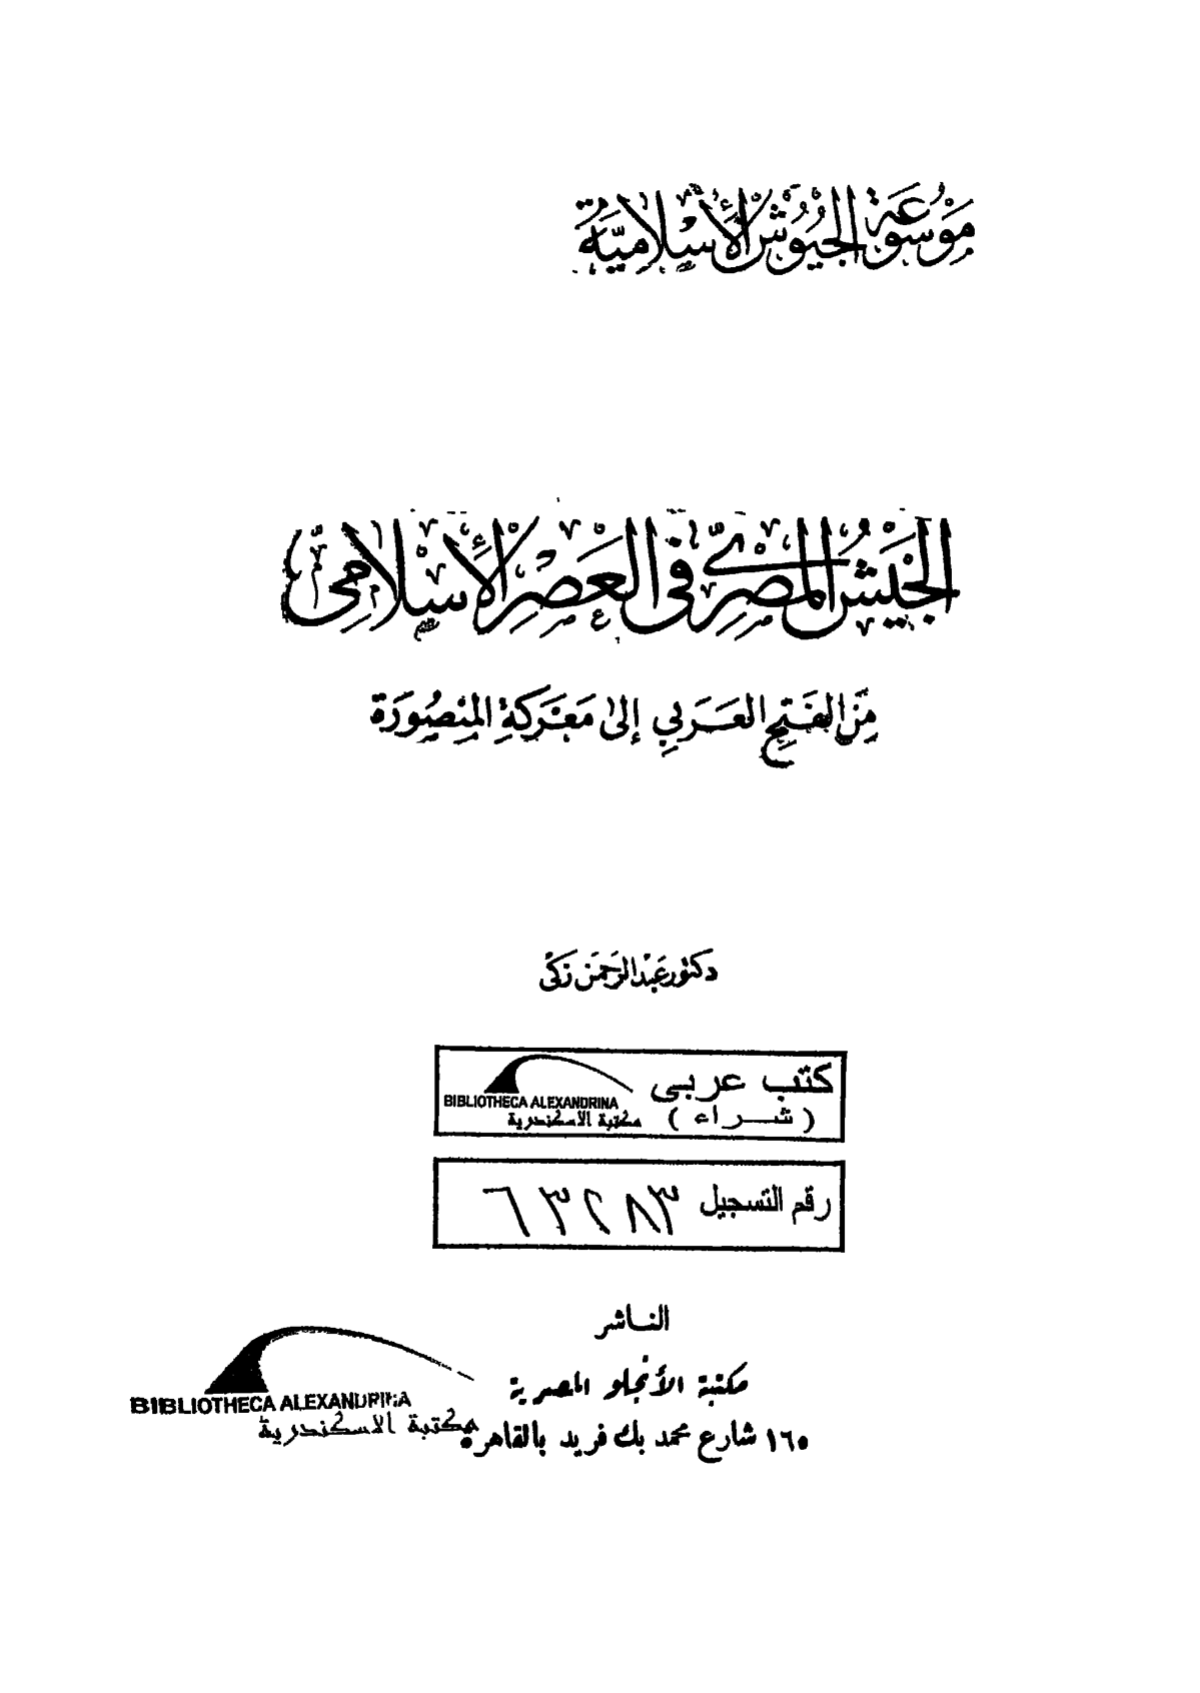 موسوعة الجيوش الإسلامية
الجيش المصرى فى العصر الإسلامى
من الفتح العربي إلى معركة المنصورة
دكتور عبد الرحمن زكى
كتب عربى
( شراء )
BIBLIOTHECA ALEXANDRINA
مكتبة الاسكندرية
رقم التسجيل ٦٣٢٨٣
الناشر
مكتبة الأنجلو المصرية
١٦٥ شارع محمد بك فريد بالقاهرة
BIBLIOTHECA ALEXANDRINA
مكتبة الاسكندرية